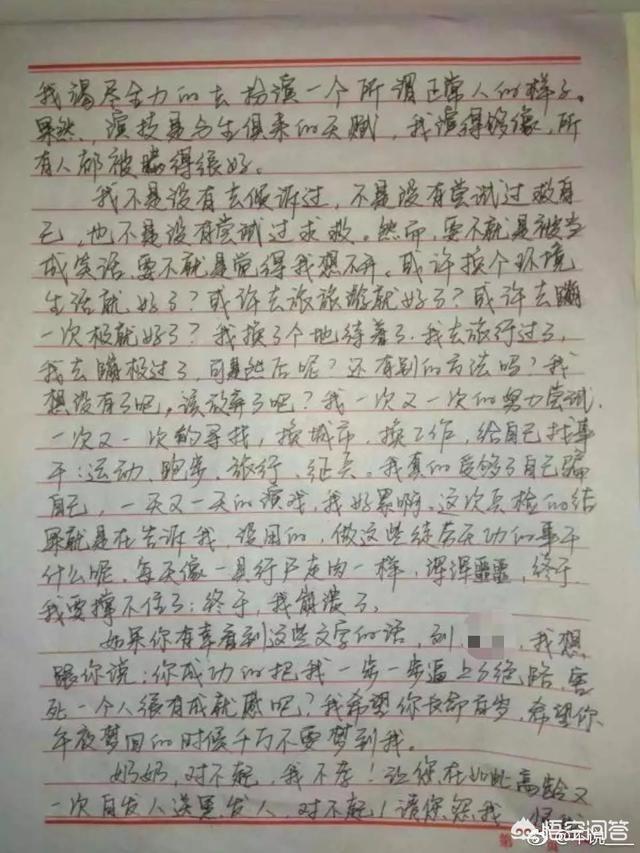 我竭尽全力的去扮演一个所谓正常人的样子。
果然，演技是与生俱来的天赋，我演得够像，所
有人都被瞒得很好。
我不是没有去倾诉过，不是没有尝试过救自
己，也不是没有尝试过求救。然而，要不就是被当
成笑话，要不就是觉得我想不开。或许换个环境
生活就好了？或许去旅旅游就好了？或许去蹦
一次极就好了？我换了个地待着了，我去旅行过了，
我去蹦极过了，可是然后呢？还有别的方法吗？我
想没有了吧，该放弃了吧？我一次又一次的努力尝试，
一次又一次的寻找，换城市，换工作，给自己找事
干：运动、跑步、旅行、征兵。我真的受够了自己骗
自己，一天又一天的演戏，我好累啊。这次兵检的结
果就是在告诉我，没用的，做这些徒劳无功的事干
什么呢，每天像一具行尸走肉一样，浑浑噩噩，终于
我要撑不住了；终于，我崩溃了。
如果你有幸看到这些文字的话，刘 ，我想
跟你说：你成功的把我一步一步逼上了绝路，害
死一个人很有成就感吧？我希望你夜都有岁，希望你
午夜梦回的时候千万不要梦到我。
奶奶，对不起，我不孝！让您在如此高龄又
一次白发人送黑发人，对不起！请您恕我
第
悟空问答